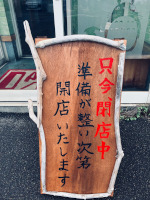 只今閉店中
準備が整い次第
開店いたします